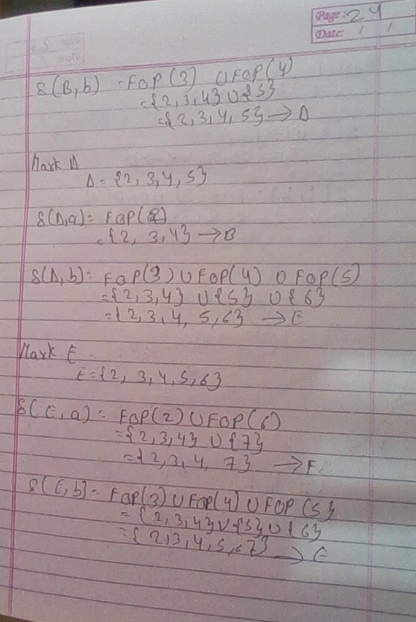 Page: 24
Date: / /
δ(B,b) = FOP(3) ∪ FOP(4)
= {2,3,4} ∪ {5}
= {2,3,4,5} → D
Mark D
D = {2,3,4,5}
δ(D,a) = FOP(2)
= {2, 3,4} → B
δ(D,b) = FOP(3) ∪ FOP(4) ∪ FOP(5)
= {2,3,4} ∪ {5} ∪ {6}
= {2,3,4, 5,6} → E
Mark E
E = {2, 3,4,5,6}
δ(E,a) = FOP(2) ∪ FOP(6)
= {2,3,4} ∪ {7}
= {2,3,4, 7} → F.
δ(E,b) = FOP(3) ∪ FOP(4) ∪ FOP (5}
= {2,3,4} ∪ {5} ∪ {6}
= {2,3,4,5, 7} → E